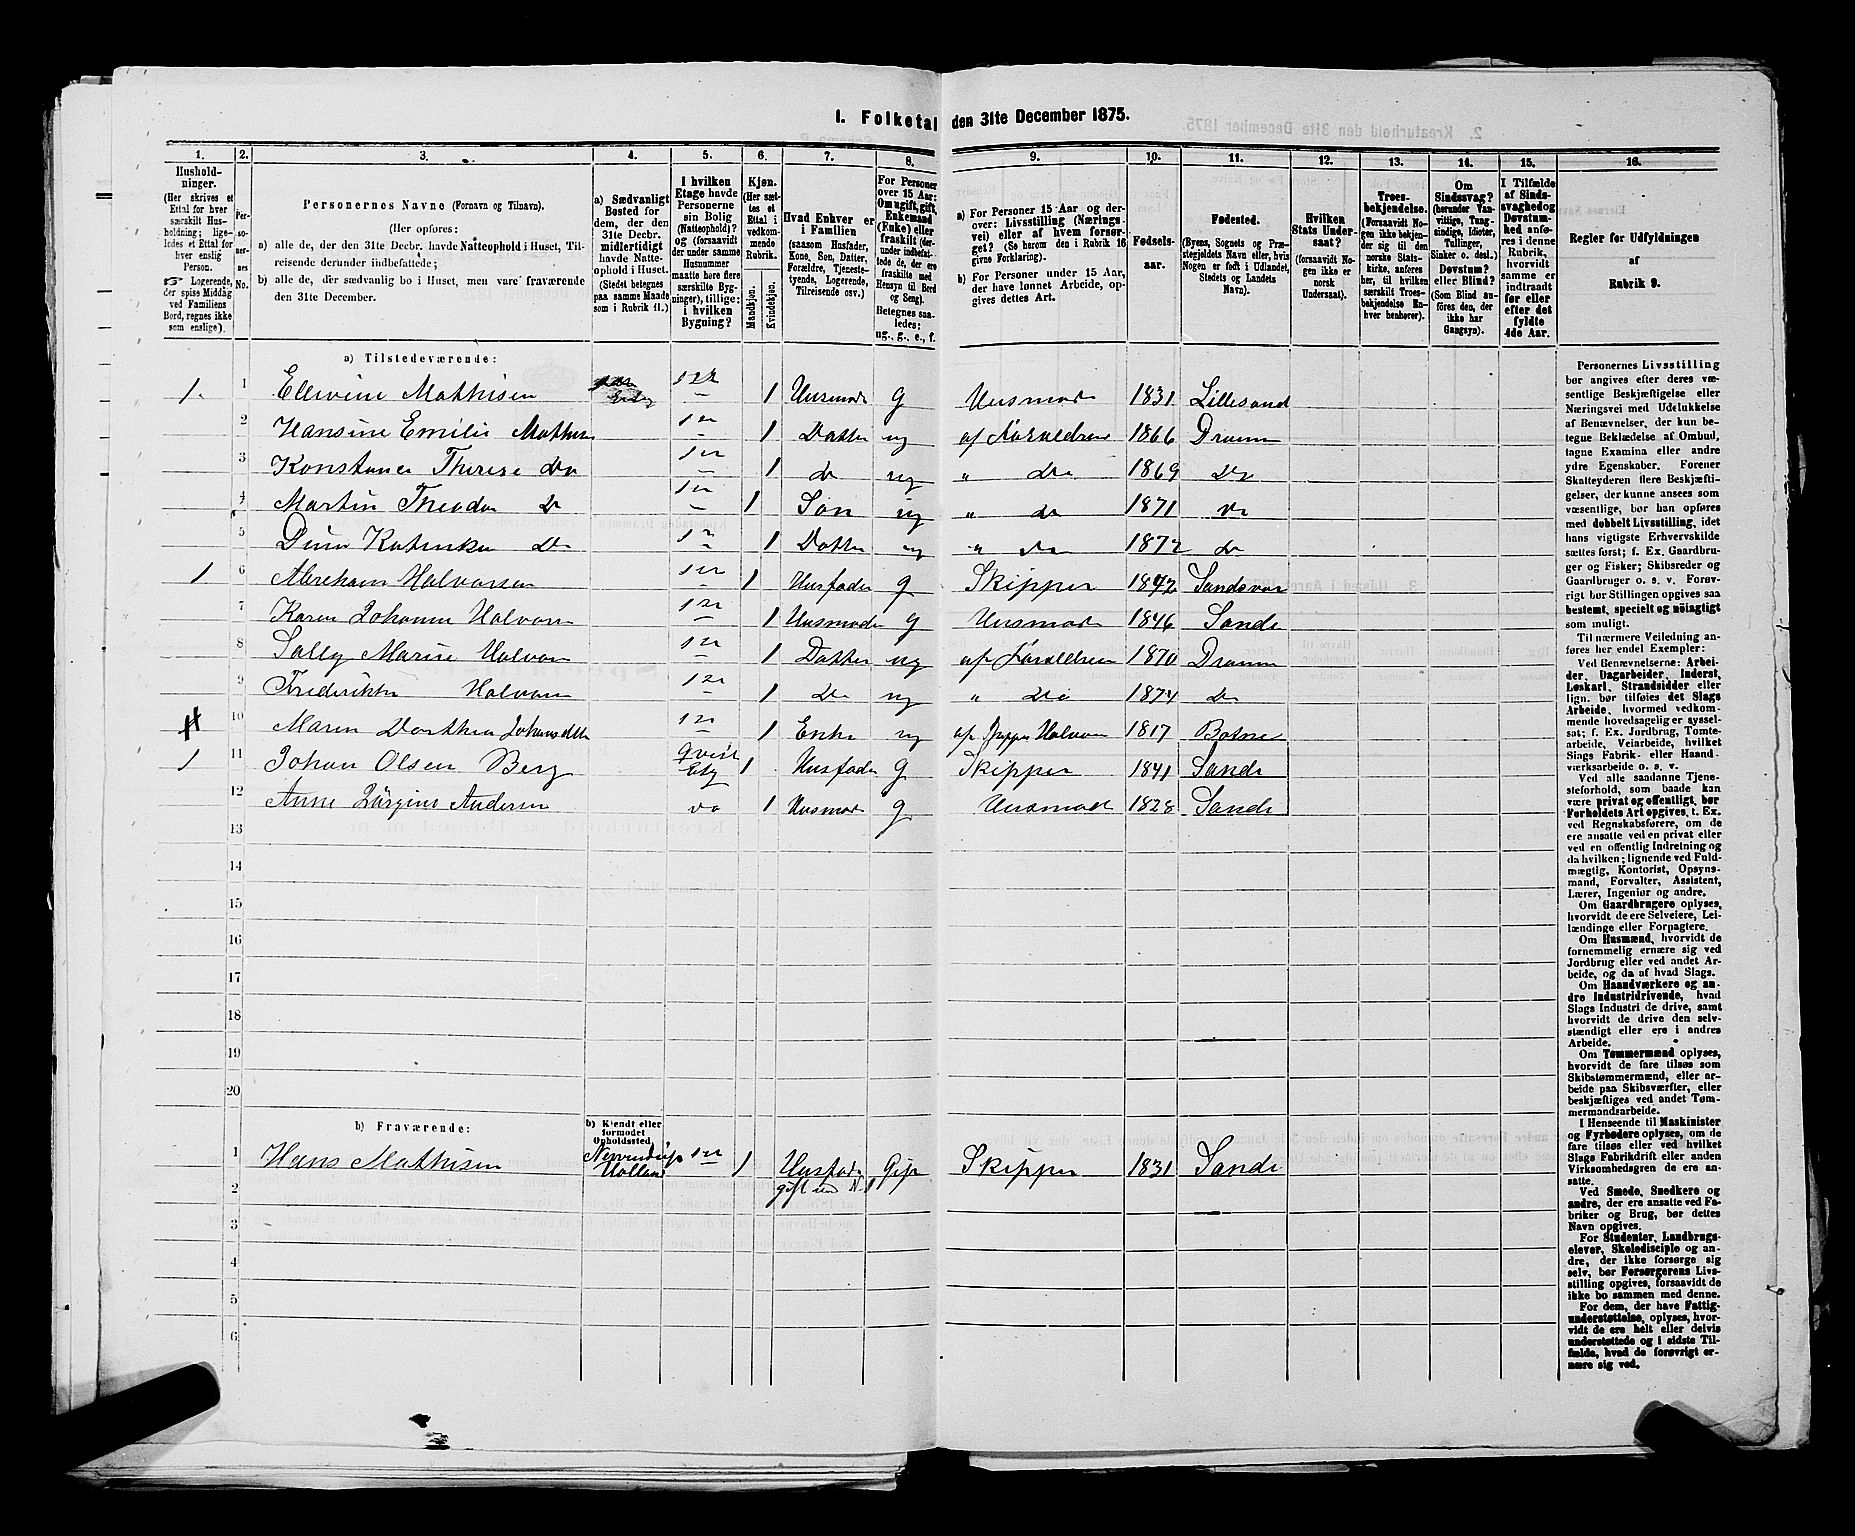 1. Folketal den 31te December 1875.
1. 2. 3. 4. 5. 6. 7. 8. 9. 10. 11. 12. 13. 14. 15. 16.
Hushold-
ninger.
(Her skrives et
Ettal for hver
særskilt Hus-
holdning; lige-
ledes et Ettal for
hver enslig
Person.
☞ Logerende,
der spise Middag
ved Familiens
Bord, regnes ikke
som enslige).
Per-
so-
ner-
nes
No.
Personernes Navne (Fornavn og Tilnavn).
(Her opføres:
a) alle de, der den 31te Decbr. havde Natteophold i Huset, Til-
reisende derunder indbefattede;
b) alle de, der sædvanlig bo i Huset, men vare fraværende
den 31te December.
a) Sædvanligt
Bosted for
dem, der den
31te Decbr.
midlertidigt
havde Natte-
ophold i Huset.
(Stedet betegnes
paa samme Maade
som i Rubrik 11.)
I hvilken
Etage havde
Personerne
sin Bolig
(Natteophold)?
og (forsaavidt
der under samme
Husnummer
maatte høre flere
særskilte Byg-
ninger), tillige:
i hvilken
Bygning?
Kjøn.
(Her sæt-
tes et
Ettal i
vedkom-
mende
Rubrik.
Mandkjøn.
Kvindekjøn.
Hvad Enhver er
i Familien
(saasom Husfader,
Kone, Søn, Datter,
Forældre, Tjeneste-
tyende, Logerende,
Tilreisende osv.)
For Personer
over 15 Aar:
Om ugift, gift,
Enkemand
(Enke) eller
fraskilt (der-
under indbefat-
tede de, der ere
fraskilte med
Hensyn til Bord
og Seng).
Betegnes saa-
ledes:
ug., g., e., f.
a) For Personer 15 Aar og der-
over: Livsstilling (Nærings-
vei) eller af hvem forsør-
get? (Se herom den i Rubrik 16
givne Forklaring).
b) For Personer under 15 Aar,
der have lønnet Arbeide, op-
gives dettes Art.
Fødsels-
aar.
Fødested.
(Byens, Sognets og Præ-
stegjeldets Navn eller, hvis
Nogen er født i Udlandet,
Stedets og Landets
Navn).
Hvilken
Stats Under-
saat?
(forsaavidt No-
gen ikke er
norsk
Undersaat).
Troes-
bekjendelse.
(Forsaavidt No-
gen ikke bekjen-
der sig til den
norske Stats-
kirke, anføres
her, til hvilken
særskilt Troes-
bekjendelse En-
hver henhører).
Om
Sindssvag?
(herunder Van-
vittige, Tung-
sindige, Idioter,
Tullinger,
Sinker o. desl.)
Døvstum?
eller Blind?
(Som Blind an-
føres den, der
ikke har
Gangsyn).
I Tilfælde
af Sinds-
svaghed og
Døvstum-
hed anfø-
res i denne
Rubrik,
hvorvidt
samme er
indtraadt
før eller
efter det
fyldte
4de Aar.
Regler for Udfyldningen
af
Rubrik 9.
a) Tilstedeværende:
1. 1 Ellevine Mathisen 1 Husmod G Husmod 1831 Lillesand
2 Hansine Emilie Mathisen 1 Datter ug af Foraldren 1866 Dramm
3 Konstance Therese Do 1 do ug " do 1869 Do
4 Martin Theodor Do 1 Søn ug " do 1871 do
5 Katinka Do 1 Datter ug " do 1872 do
1 6 Abreham Halvorsen 1 Husfader g Skipper 1842 Sandsvær
7 Karen Johanne Halvorsen 1 Husmoder g Husmod 1846 Sande
8 Sally Marie Halvor 1 Datter ug af Foraldren 1870 Dramm
9 Frederikke Halvorsen 1 Do ug " Do 1874 Do
10 Maren Dorthea Johansdtt 1 Enke ug af Halvor 1817 Botne
1 11 Johan Olsen Berg Qvist Etg 1 Husfader G Skipper 1841 Sande
12 Anne Jørgine Andersen do 1 Husmod g Husmod 1828 Sande
13
14
15
16
17
18
19
20
b) Fraværende:
b) Kjendt eller
formodet
Opholdssted.
1 Hans Mathisen Holland 1 Husfader Gift Skipper 1831 Sande
2 gift med N. 1
3
4
5
6
Personernes Livsstilling
bør angives efter deres væ-
sentlige Beskjæftigelse eller
Næringsvei med Udelukkelse
af Benævnelser, der kun be-
tegne Beklædelse af Ombud,
tagne Examina eller andre
ydre Egenskaber. Forener
Skatteyderen flere Beskjæfti-
gelser, der kunne ansees som
væsentlige, bør han opføres
med dobbelt Livsstilling, idet
hans vigtigste Erhvervskilde
sættes først; f. Ex. Gaardbru-
ger og Fisker; Skibsreder og
Gaardbruger o. s. v. Forøv-
rigt bør Stillingen opgives saa
bestemt, specielt og nöiagtigt
som muligt.
Til nærmere Veiledning an-
føres her endel Exempler:
Ved Benævnelserne: Arbei-
der, Dagarbeider, Inderst,
Løskarl, Strandsidder eller
lign. bør tilføies det Slags
Arbeide, hvormed vedkom-
mende hovedsagelig er syssel-
sat; f. Ex. Jordbrug, Tomte-
arbeide, Veiarbeide, hvilket
Slags Fabrik- eller Haand-
værksarbeide o. s. v.
Ved alle saadanne Tjene-
steforhold, som baade kan
være privat og offentligt, bør
Forholdets Art opgives, t. Ex.
ved Regnskabsførere, om de
ere ansatte ved en privat eller
ved en offentlig Indretning og
da hvilken; lignende ved Fuld-
mægtig, Kontorist, Opsyns-
mand, Forvalter, Assistent,
Lærer, Ingeniør og andre.
Om Gaardbrugere oplyses,
hvorvidt de ere Selveiere, Lei-
lændinge eller Forpagtere.
Om Husmænd, hvorvidt de
fornemmelig ernære sig ved
Jordbrug eller ved andet Ar-
beide, og da af hvad Slags.
Om Haandværkere og an-
dre Industridrivende, hvad
Slags Industri de drive, samt
hvorvidt de drive den selv-
stændigt eller ere i andres
Arbeide.
Om Tømmermænd oplyses,
hvorvidt de fare tilsøs som
Skibstømmermænd, eller ar-
beide paa Skibsværfter, eller
beskjæftiges ved andet Tøm-
mermandsarbeide.
I Henseende til Maskinister
og Fyrbødere oplyses, om de
fare tilsøs eller ved hvilket
Slags Fabrikdrift eller anden
Virksomhedsgren de ere an-
satte.
Ved Smede, Snedkere og
andre, der ere ansatte ved Fa-
briker og Brug, bør dettes
Navn opgives.
For Studenter, Landbrugs-
elever, Skoledisciple og an-
dre, der ikke forsørge sig
selv, bør Forsørgerens Livs-
stilling opgives, forsaavidt de
ikke bo sammen med denne.
For dem, der have Fattig-
understøttelse, oplyses, hvor-
vidt de ere helt eller delvis
understøttede og i sidste Til-
fælde, hvad de forøvrigt er-
nære sig ved.